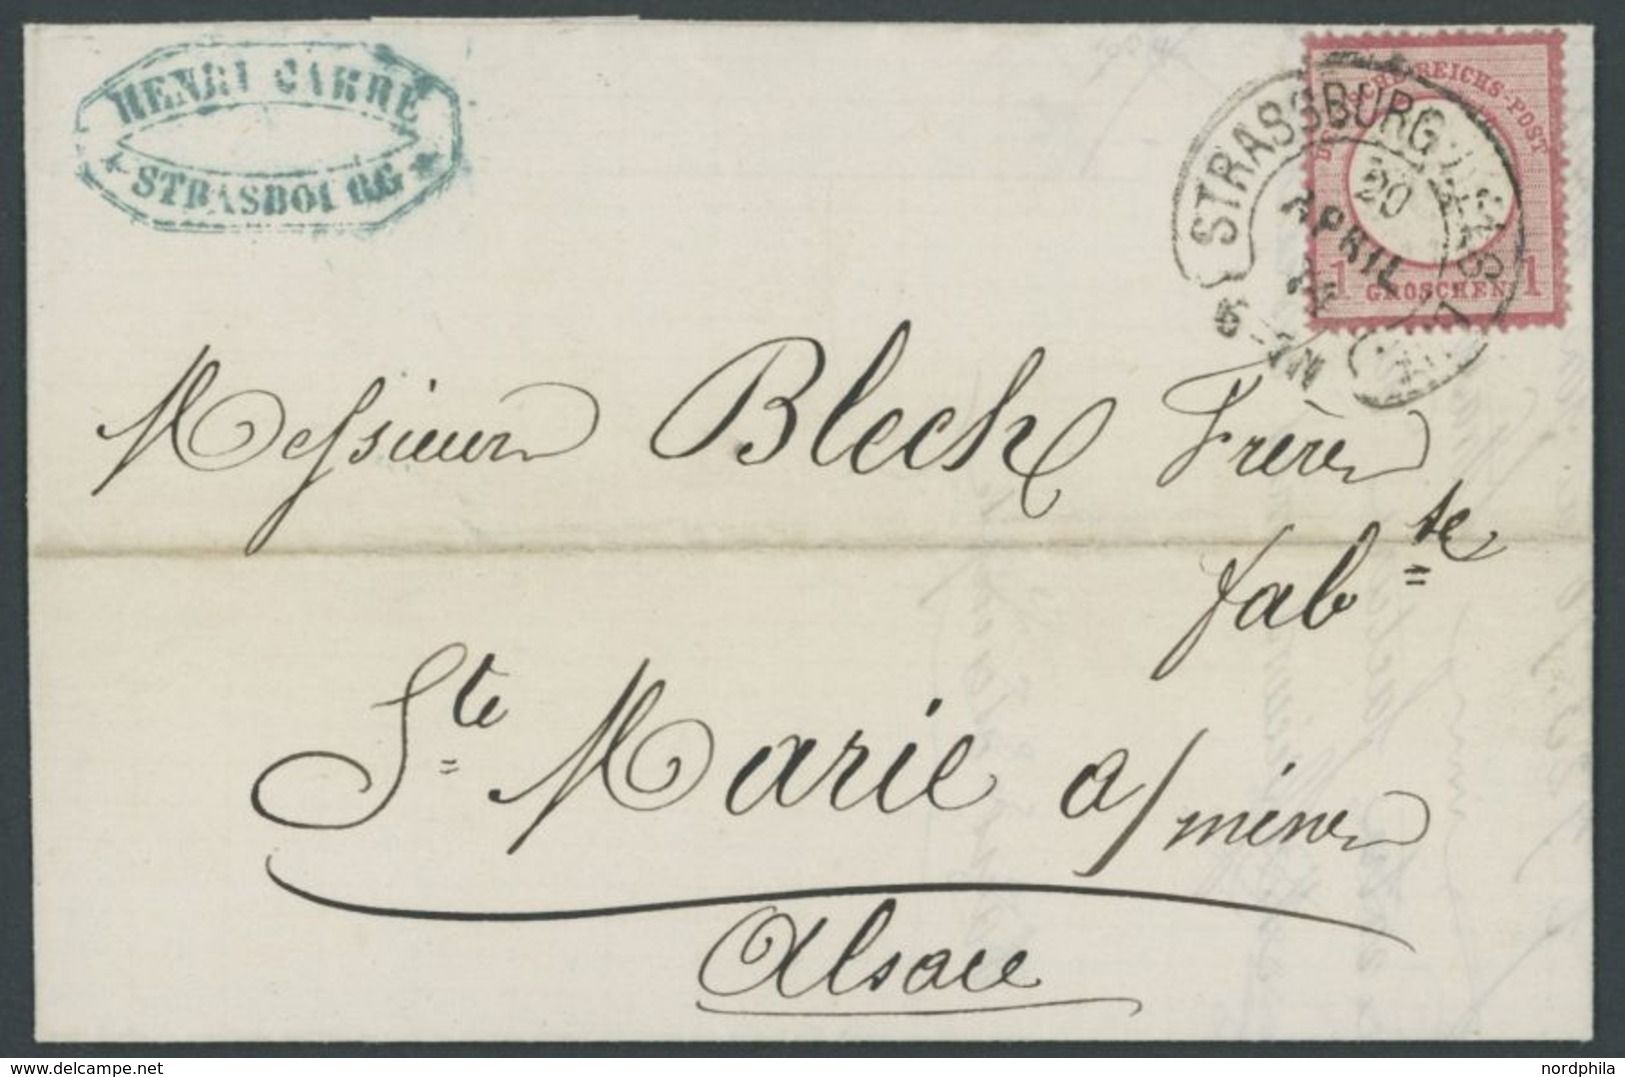 HENRI CARRÉ
STRASBOURG
DEUTSCHE REICHS-POST
1 GROSCHEN 1
STRASSBURG
20
APRIL
Messieurs Blech Frères
fab te
Ste Marie a/mines
Alsace
nordphila